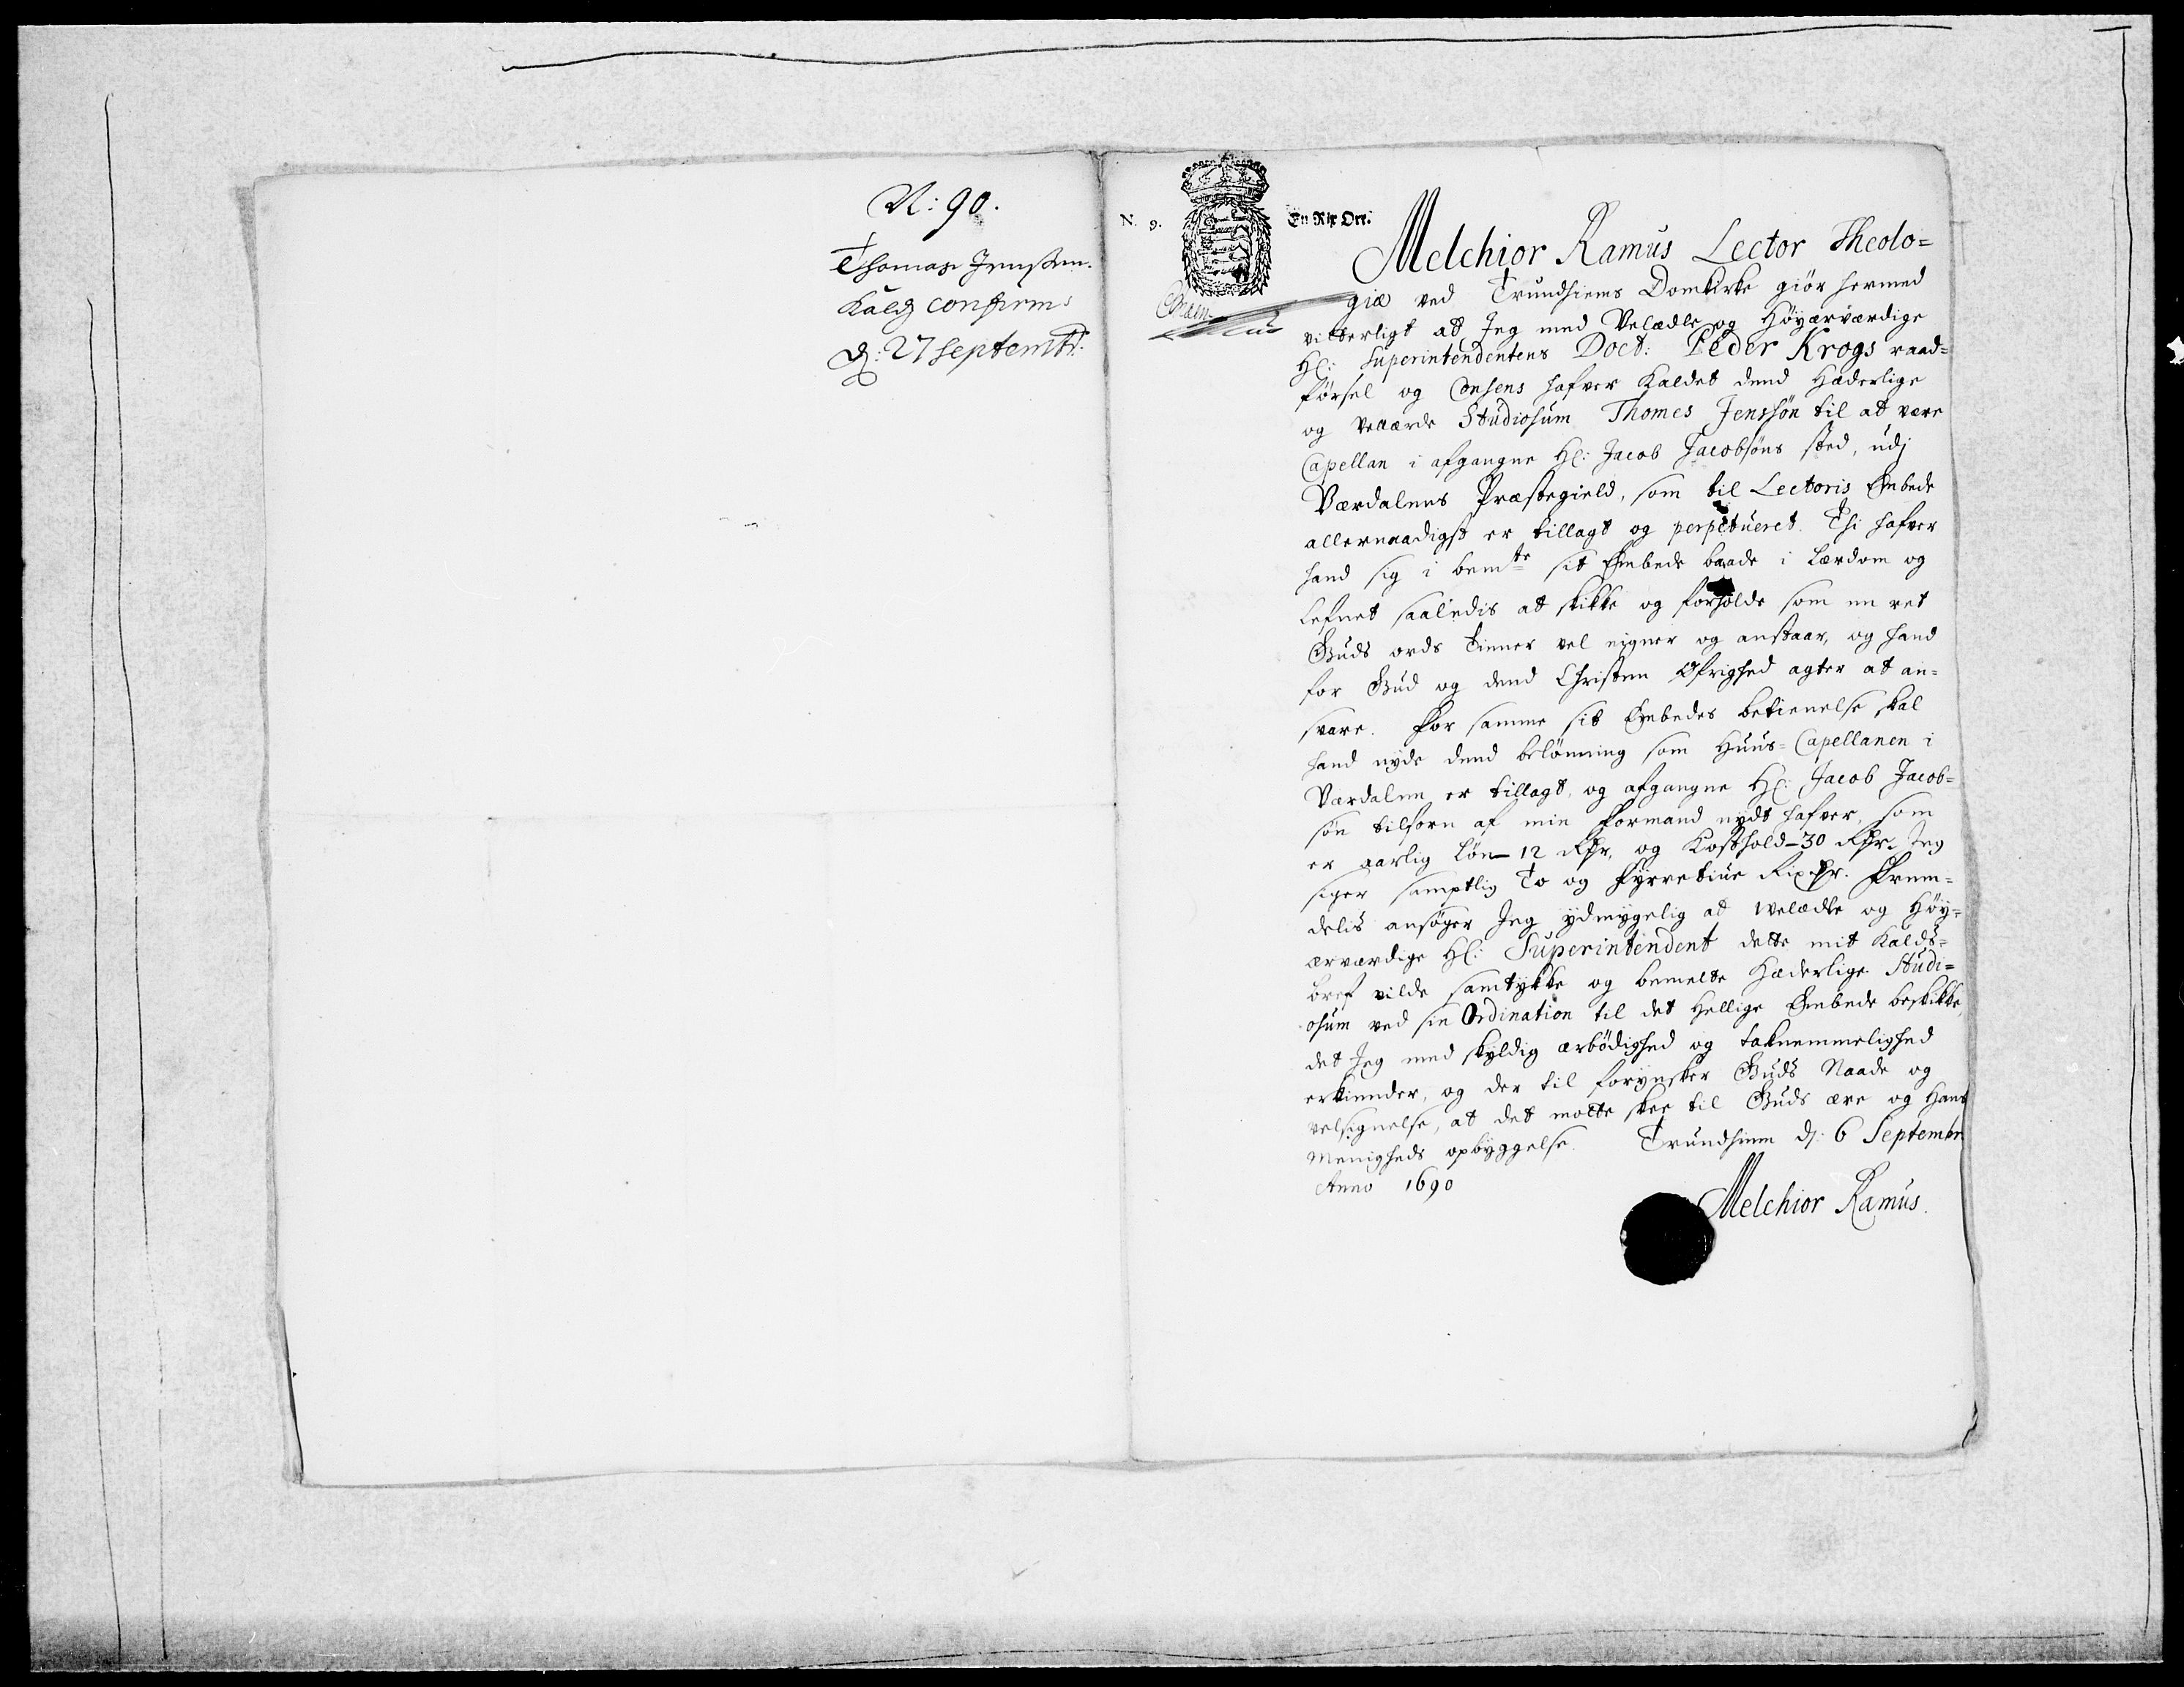 N: 90.
Thomas Jenssen.
Kalds confirm:
d: 27 Septembr.
N. 9.
En Rix Ort.
Melchior Ramus Lector Theolo=
giæ ved Trundhiems Domkirke giör hermed
vitterligt at Jeg med Velædle og Höyærværdige
Hl: Superintendentens Doct: Peder Krogs raad=
försel og Consens hafver kaldet dend Hæderlige
og Vellærde Studiosum Thomes Jenssön til at være
Capellan i afgangne Hl: Jacob Jacobsöns sted, udj
Værdalens Præstegield, som til Lectoris Embede
allernaadigst er tillagt og perpetueret. Thi hafver
hand sig i bemte sit Embede baade i Lærdom og
Lefnet saaledis at skikke og forholde som en ret
Guds ords Tiener vel eigner og anstaar, og hand
for Gud og dend Christen Öfrighed agter at an=
svare. For samme sit Embedes betienelse skal
hand nyde dend belönning som Huus=Capellanen i
Værdalen er tillagt, og afgangne Hl: Jacob Jacob=
sön tilforn af min Formand nydt hafver, som
er aarlig Lön - 12 Rdr, og Kosthold - 30 Rdr. Jeg
siger samptlig To og Fyrretiue Rixdr. Frem=
delis ansöger Jeg ydmygelig at Welædle og Höy=
ærværdige Hl: Superintendent dette mit Kalds=
bref vilde samtykke og bemelte Hæderlige Studi=
osum ved sin Ordination til det Hellige Embede beskikke,
det Jeg med skyldig ærbödighed og taknemmelighed
erkiender, og der til forynsker Guds Naade og
velsignelse, at det motte skee til Guds ære og Hans
Menigheds opbyggelse. Trundhiem d: 6 Septembr
Anno 1690
Melchior Ramus.